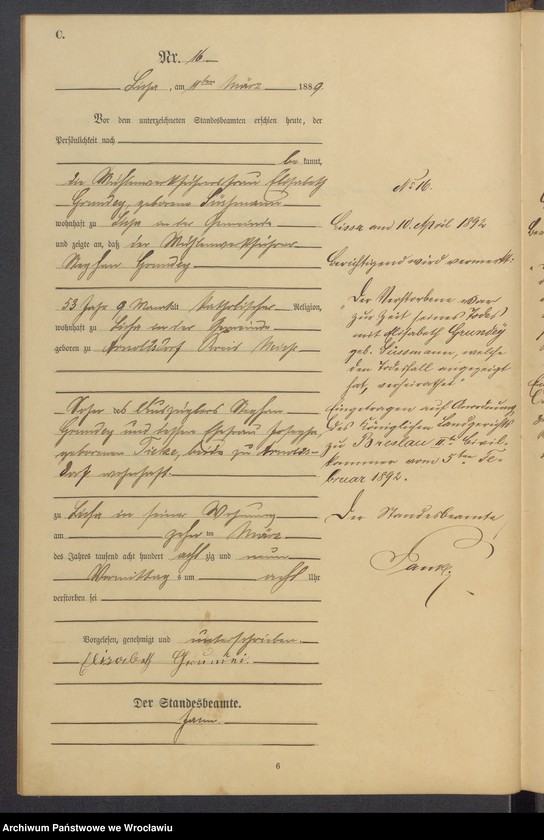 C.
Nr. 16
Lissa, am 11ten März 1889.
Vor dem unterzeichneten Standesbeamten erschien heute, der
Persönlichkeit nach
be kannt,
die Mühlenwerkführersfrau Elisabeth
Grundey, geborene Süssmann
wohnhaft zu Lissa in der Gemeinde
und zeigte an, daß der Mühlenwerkführer
Stephan Grundey
53 Jahr 9 Monat alt katholischer Religion,
wohnhaft zu Lissa in der Gemeinde
geboren zu Arnoldsdorf Kreis
Sohn des Auszüglers Stephan
Grundey und dessen Ehefrau Josepha,
geborenen beide zu Arnolds-
dorf wohnhaft
zu Lissa in seiner Wohnung
am zehn ten März
des Jahres tausend acht hundert acht zig und neun
Vormittag s um acht Uhr
verstorben sei
Vorgelesen, genehmigt und unterschrieben.
Elisabeth
Der Standesbeamte.
6
No 16.
Lissa am 10. April 1892
Berichtigend wird vermerkt:
"Der Verstorbene war
zur Zeit seines Todes
mit Elisabeth Grundey
geb. Süssmann, welche
den Todesfall angezeigt
hat, verheirathet"
Eingetragen auf Anordnung
des Königlichen Landgerichts
zu Breslau IIte Civil-
kammer vom 5ten Fe-
bruar 1892.
Der Standesbeamte
Archiwum Państwowe we Wrocławiu